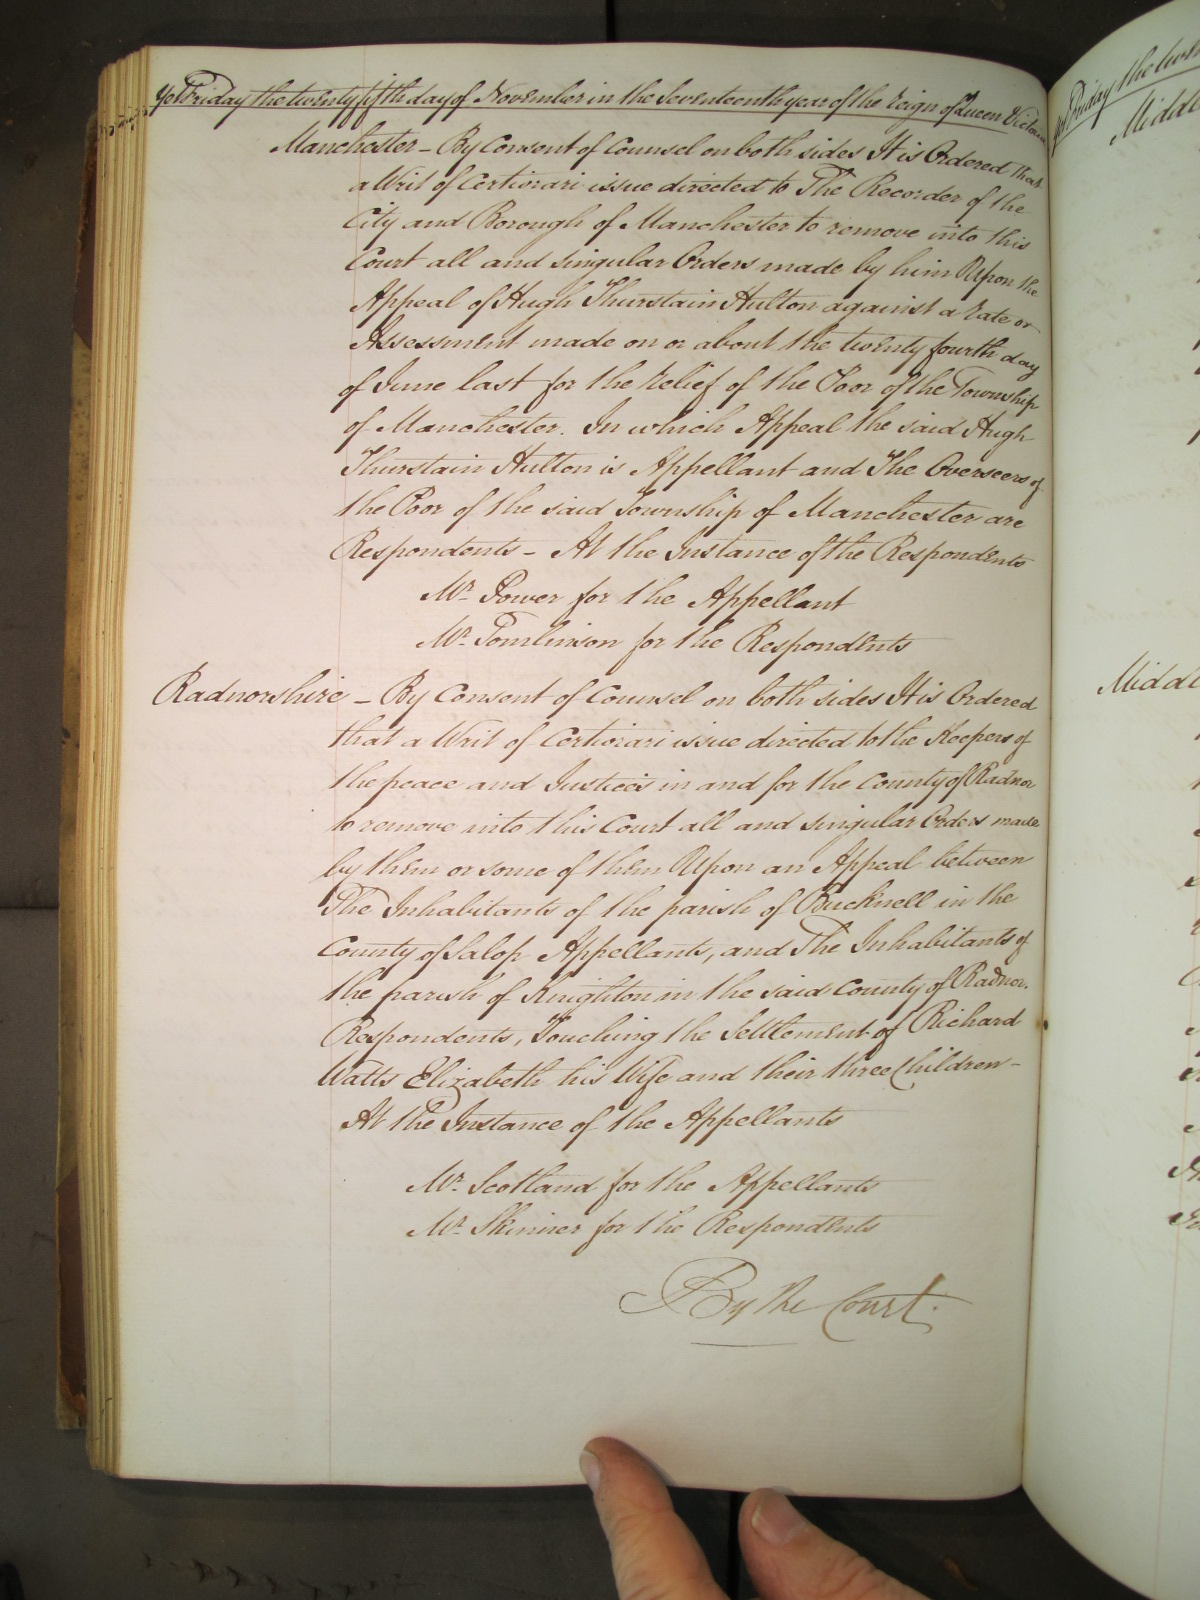 Yet Friday the twenty fifth day of November in the Seventeenth year of the Reign of Queen Victoria
Manchester – By Consent of Counsel on both sides It is Ordered that
a Writ of Certiorari issue directed to The Recorder of the
City and Borough of Manchester to remove into this
Court all and singular Orders made by him Upon the
Appeal of Hugh Thurstain Hulton against a Rate or
Assessment made on or about the twenty fourth day
of June last for the Relief of the Poor of the Township
of Manchester. In which Appeal the said Hugh
Thurstain Hulton is Appellant and The Overseers of
the Poor of the said Township of Manchester are
Respondents – At the Instance of the Respondents
Mr. Power for the Appellant
Mr. Tomlinson for the Respondents
Radnorshire – By Consent of Counsel on both sides It is Ordered
that a Writ of Certiorari issue directed to the Keepers of
the peace and Justices in and for the County of Radnor
to remove into this Court all and singular Orders made
by them or some of them Upon an Appeal between
The Inhabitants of the parish of Bucknell in the
County of Salop Appellants, and The Inhabitants of
the parish of Knighton in the said County of Radnor.
Respondents, Touching the Settlement of Richard
Watts Elizabeth his Wife and their three Children –
At the Instance of the Appellants
Mr. Scotland for the Appellants
Mr. Skinner for the Respondents
By the Court.
Yet Friday the
Middl
Middl